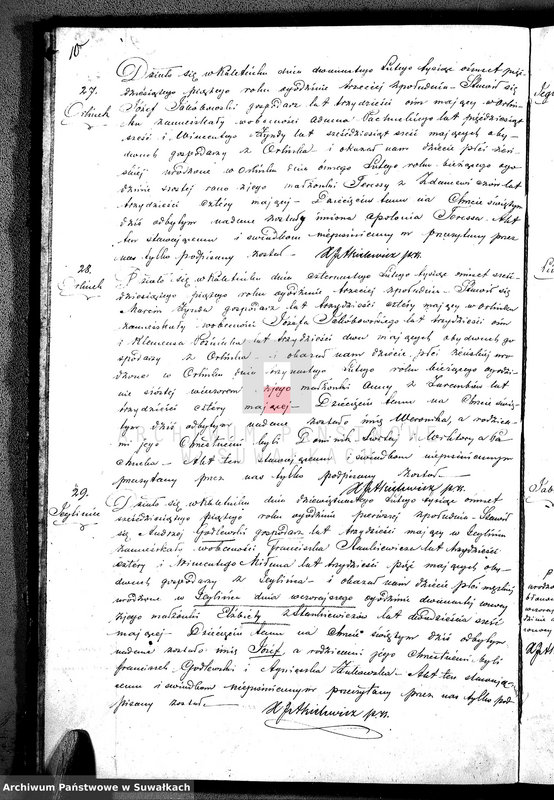 10
27.
Orlinek
Działo się w Kaletniku dnia dwunastego Lutego tysiąc ośmset sześć-
dziesiątego piątego roku ogodzinie trzeciej zpołudnia - Stawił się
Józef Jakubowski gospodarz lat trzydzieści ośm mający w Orlin-
ku zamieszkały wobecności Adama lat pięćdziesiąt
sześć i Wincentego Zyndy lat sześćdziesiąt sześć mających oby-
dwuch gospodarzy z Orlinka - i okazał nam dziecie płci żeń-
skiej urodzone w Orlinku dnia ósmego Lutego roku bieżącego ogo-
dzinie szostej rano z jego małżonki Teressy z lat
trzydzieści cztery mającej - Dziecięciu temu na Chrzcie świętym
dziś odbytym nadane zostały imiona Apolonia Teressa. Akt
ten stawającemu i świadkom niepiśmiennym przeczytany przez
nas tylko podpisany został -
28.
Orlinek
Działo się w Kaletniku dnia czternastego Lutego tysiąc ośmset sześć-
dziesiątego piątego roku ogodzinie trzeciej zpołudnia - Stawił się
Marcin Zynda gospodarz lat trzydzieści cztery mający w Orlinku
zamieszkały - wobecności Józefa Jakubowskiego lat trzydzieści ośm
i Klemensa lat trzydzieści dwa mających obydwuch go-
spodarzy z Orlinka - i okazał nam dziecie płci żeńskiej uro-
dzone w Orlinku dnia trzynastego Lutego roku bieżącego ogodzi-
nie szóstej wieczorem z jego małżonki Anny z lat
trzydzieści cztery mającej - Dziecięciu temu na Chrzcie świę-
tym dziś odbytym nadane zostało imię Weronika, a rodzica-
mi jego Chrzestnemi byli Dominik
Akt ten stawającemu i świadkom niepiśmiennym
przeczytany przez nas tylko podpisany został -
29.
Seyliniec
Działo się w Kaletniku dnia dziewiętnastego Lutego tysiąc ośmset
sześćdziesiątego piątego roku ogodzinie pierwszej zpołudnia - Stawił
się Andrzej Godlewski gospodarz lat trzydzieści mający w Seylińcu
zamieszkały wobecności Franciszka Stankiewicza lat trzydzieści
cztery i Wincentego lat trzydzieści pięć mających oby-
dwuch gospodarzy z Seylińca - i okazał nam dziecie płci męzkiej
urodzone w Seylińcu dnia wczorajszego ogodzinie dwunastej wnocy
z jego małżonki Elżbiety z Stankiewiczów lat dwadzieścia sześć
mającej - Dziecięciu temu na Chrzcie świętym dziś odbytym
nadane zostało imię Józef a rodzicami jego Chrzestnemi byli
Franciszek Godlewski i Agnieszka Żukowska - Akt ten stawają-
cemu i świadkom niepiśmiennym przeczytany przez nas tylko pod-
pisany został -
ARCHIWUM PAŃSTWOWE
W SUWAŁKACH
Archiwum Państwowe w Suwałkach